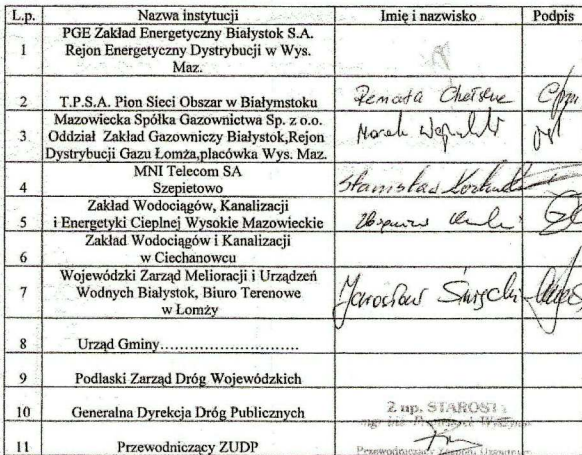 L.p. Nazwa instytucji Imię i nazwisko Podpis
PGE Zakład Energetyczny Białystok S.A.
1 Rejon Energetyczny Dystrybucji w Wys.
Maz.
2 T.P.S.A. Pion Sieci Obszar w Białymstoku Renata
Mazowiecka Spółka Gazownictwa Sp. z o.o.
3 Oddział Zakład Gazowniczy Białystok,Rejon Marek
Dystrybucji Gazu Łomża,placówka Wys. Maz.
MNI Telecom SA
4 Szepietowo Stanisław
Zakład Wodociągów, Kanalizacji
5 i Energetyki Cieplnej Wysokie Mazowieckie Zbigniew
Zakład Wodociągów i Kanalizacji
6 w Ciechanowcu
Wojewódzki Zarząd Melioracji i Urządzeń
7 Wodnych Białystok, Biuro Terenowe Jarosław
w Łomży
8 Urząd Gminy............................
9 Podlaski Zarząd Dróg Wojewódzkich
10 Generalna Dyrekcja Dróg Publicznych Z up. STAROSTY
11 Przewodniczący ZUDP Przewodniczący Zespołu